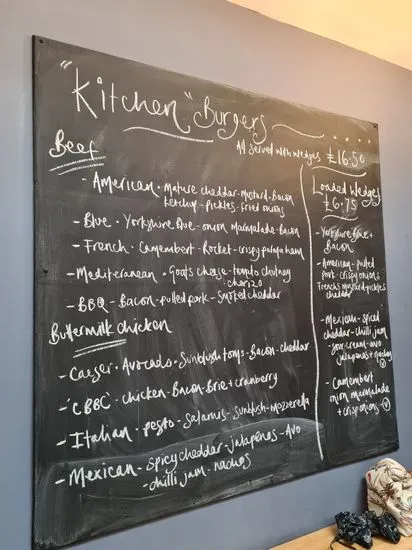 "Kitchen" Burgers
All served with wedges £16.50
Beef
- American - Mature cheddar - Mustard - Bacon
ketchup - pickles - fried onions
- Blue - Yorkshire Blue - onion Marmalade - Bacon
- French - Camembert - Rocket - crispy parma ham
- Mediteranean - Goats cheese - tomato chutney
chorizo
- BBQ - Bacon - pulled pork - Smoked cheddar
Buttermilk chicken
- Caeser - Avocado - Sunblush toms - Bacon - cheddar
- 'CBBC' - chicken - Bacon - Brie + cranberry
- Italian - pesto - Salamis - Sunblush - Mozzerella
- Mexican - spicy cheddar - jalapenos - Avo
- chilli jam - nachos
Loaded Wedges
£6.75
- Yorkshire Blue +
Bacon
- American - pulled
pork - crispy onions
Frenchs mustard - pickles
cheddar
- Mexican - spiced
cheddar - chilli jam
sour cream - avo
jalapenos + nachos
V
- Camembert
onion marmalade
+ crisp onions V